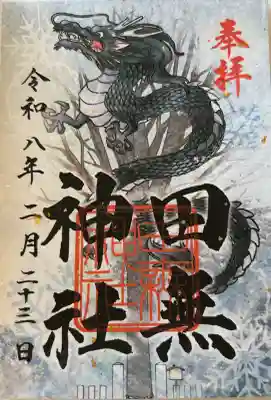 奉拝
田無
神社
令和八年二月二十三日